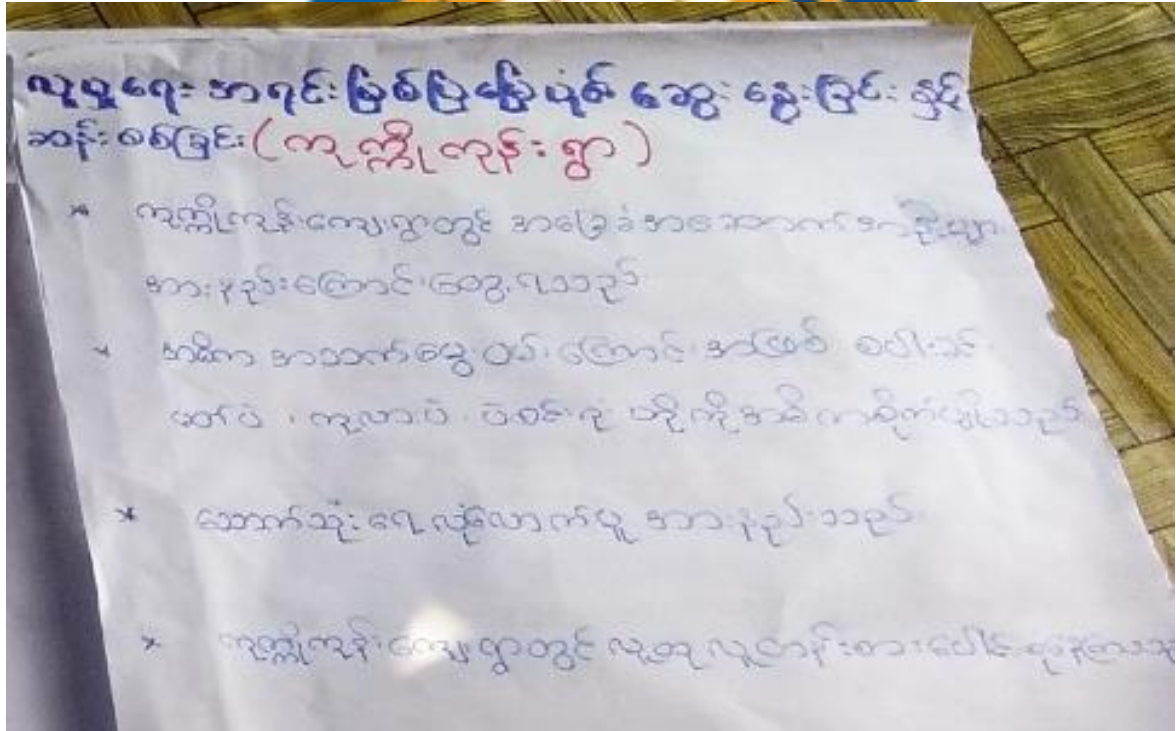 လူမှုရေး အရင်းမြစ်ပြမြေပုံစံ ဆွေးနွေးခြင်း နှင့်
ဆန်းစစ်ခြင်း (ကုက္ကိုကုန်းရွာ)
* ကုက္ကိုကုန်းကျေးရွာတွင် အခြေခံအဆောက်အဦးများ
အားနည်းကြောင်းတွေ့ရသည်
* အဓိက အသက်မွေးဝမ်းကြောင်းအဖြစ် စပါးခင်း
မတ်ပဲ ၊ ကုလားပဲ ၊ ပဲစင်းငုံ တို့ကိုအဓိကစိုက်ပျိုးသည်
* သောက်သုံးရေလုံလောက်မှု အားနည်းသည်
* ကုက္ကိုကုန်းကျေးရွာတွင် လူတန်းစားပေါင်းစုံနေ